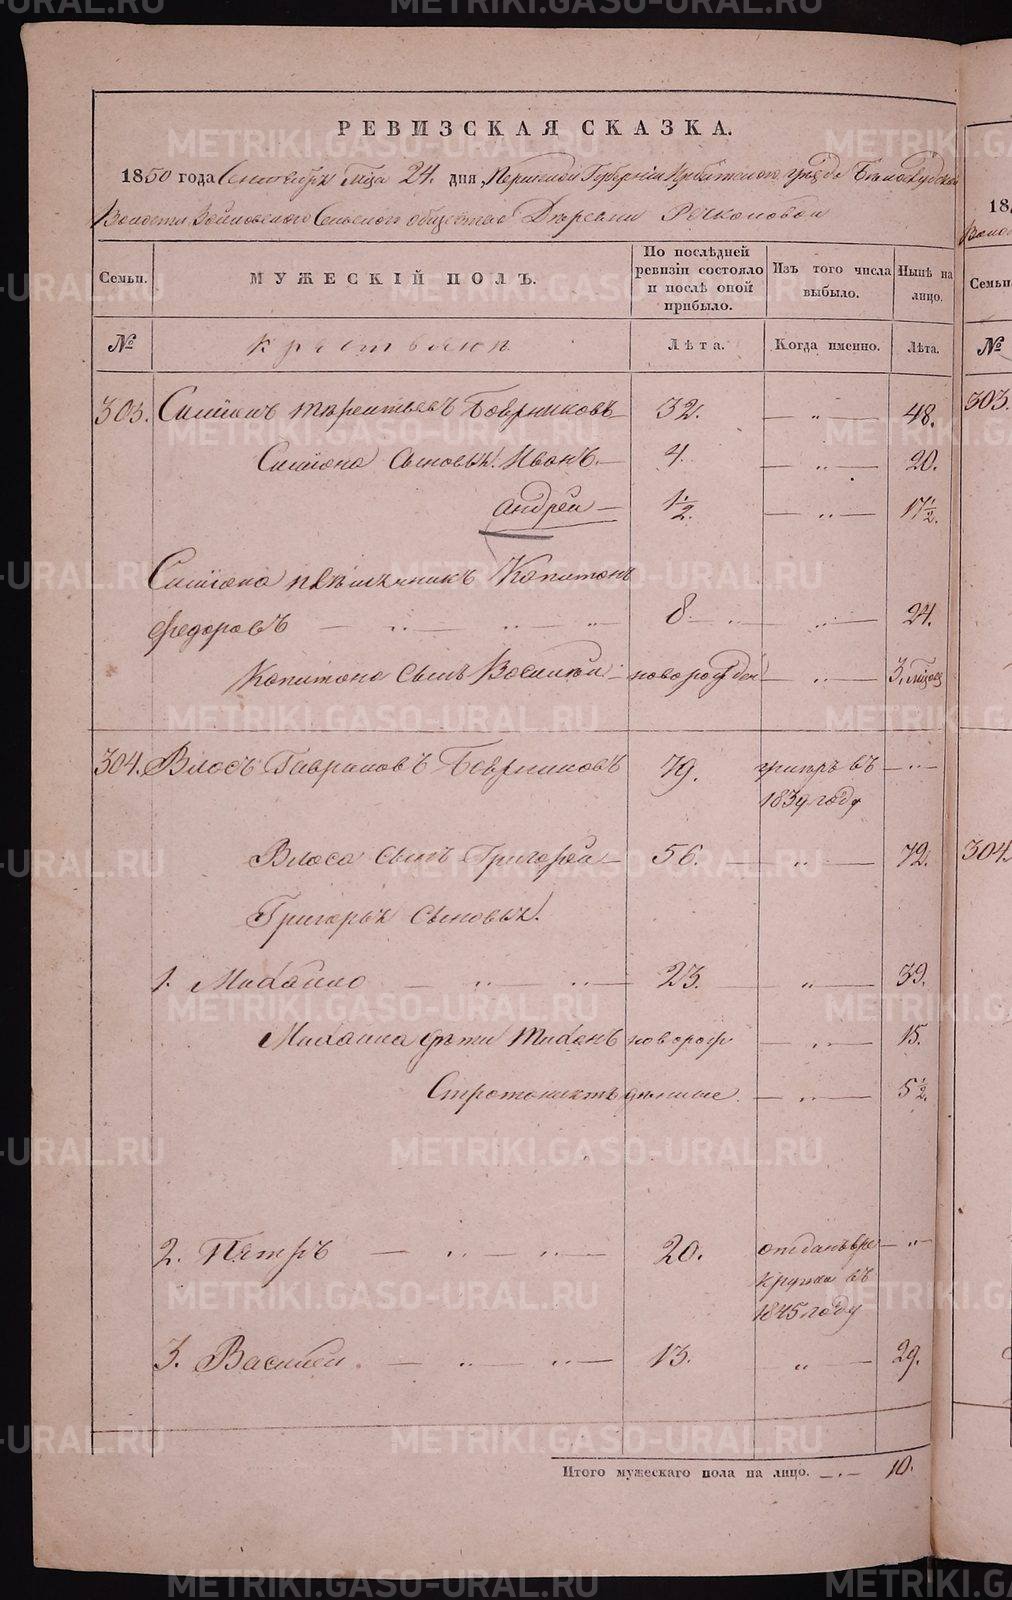 РЕВИЗСКАЯ СКАЗКА.
1850 года Сентября м҃ца 24. дня, Пермской Губернiи Ирбитского уѣзда Бѣлослудской
Волости Сельского общества Деревни Речкаловой
Семьи.
МУЖЕСКІЙ ПОЛЪ.
По послѣдней ревизіи состояло и послѣ оной прибыло.
Изъ того числа выбыло.
Нынѣ на лицо.
№
крестьяни
Лѣта.
Когда именно.
Лѣта.
303. Симионъ терентьевъ Бобрниковъ 32. — „ — 48.
Симиона сыновья. Иванъ. — 4. — „ — 20.
андрей — 1½. — „ — 17½.
Симиона племянникъ Капитонъ
федоровъ — „ — „ — „ 8 — „ — „ — 24.
Капитона сынъ Василiй — новорожден — „ — 3. мѣсец
304. Власъ Гавриловъ Бобрниковъ 79. умеръ въ — „ —
1839 году
Власа сынъ Григорей — 56. — „ — 72.
Григорья сыновья.
1. Михайло — „ — „ — 23. — „ — 39.
Михайла дѣти Тихонъ новорож — „ — 15.
Стратоникъ денные — „ — 5½.
2. Петръ — „ — „ — 20. отданъ вре — „
круты въ
1845 году
3. Василей — „ — „ — 13. „ — 29.
Итого мужескаго пола на лицо. — „ — 10.
18
303.
304.
Семьи
№
METRIKI.GASO-URAL.RU